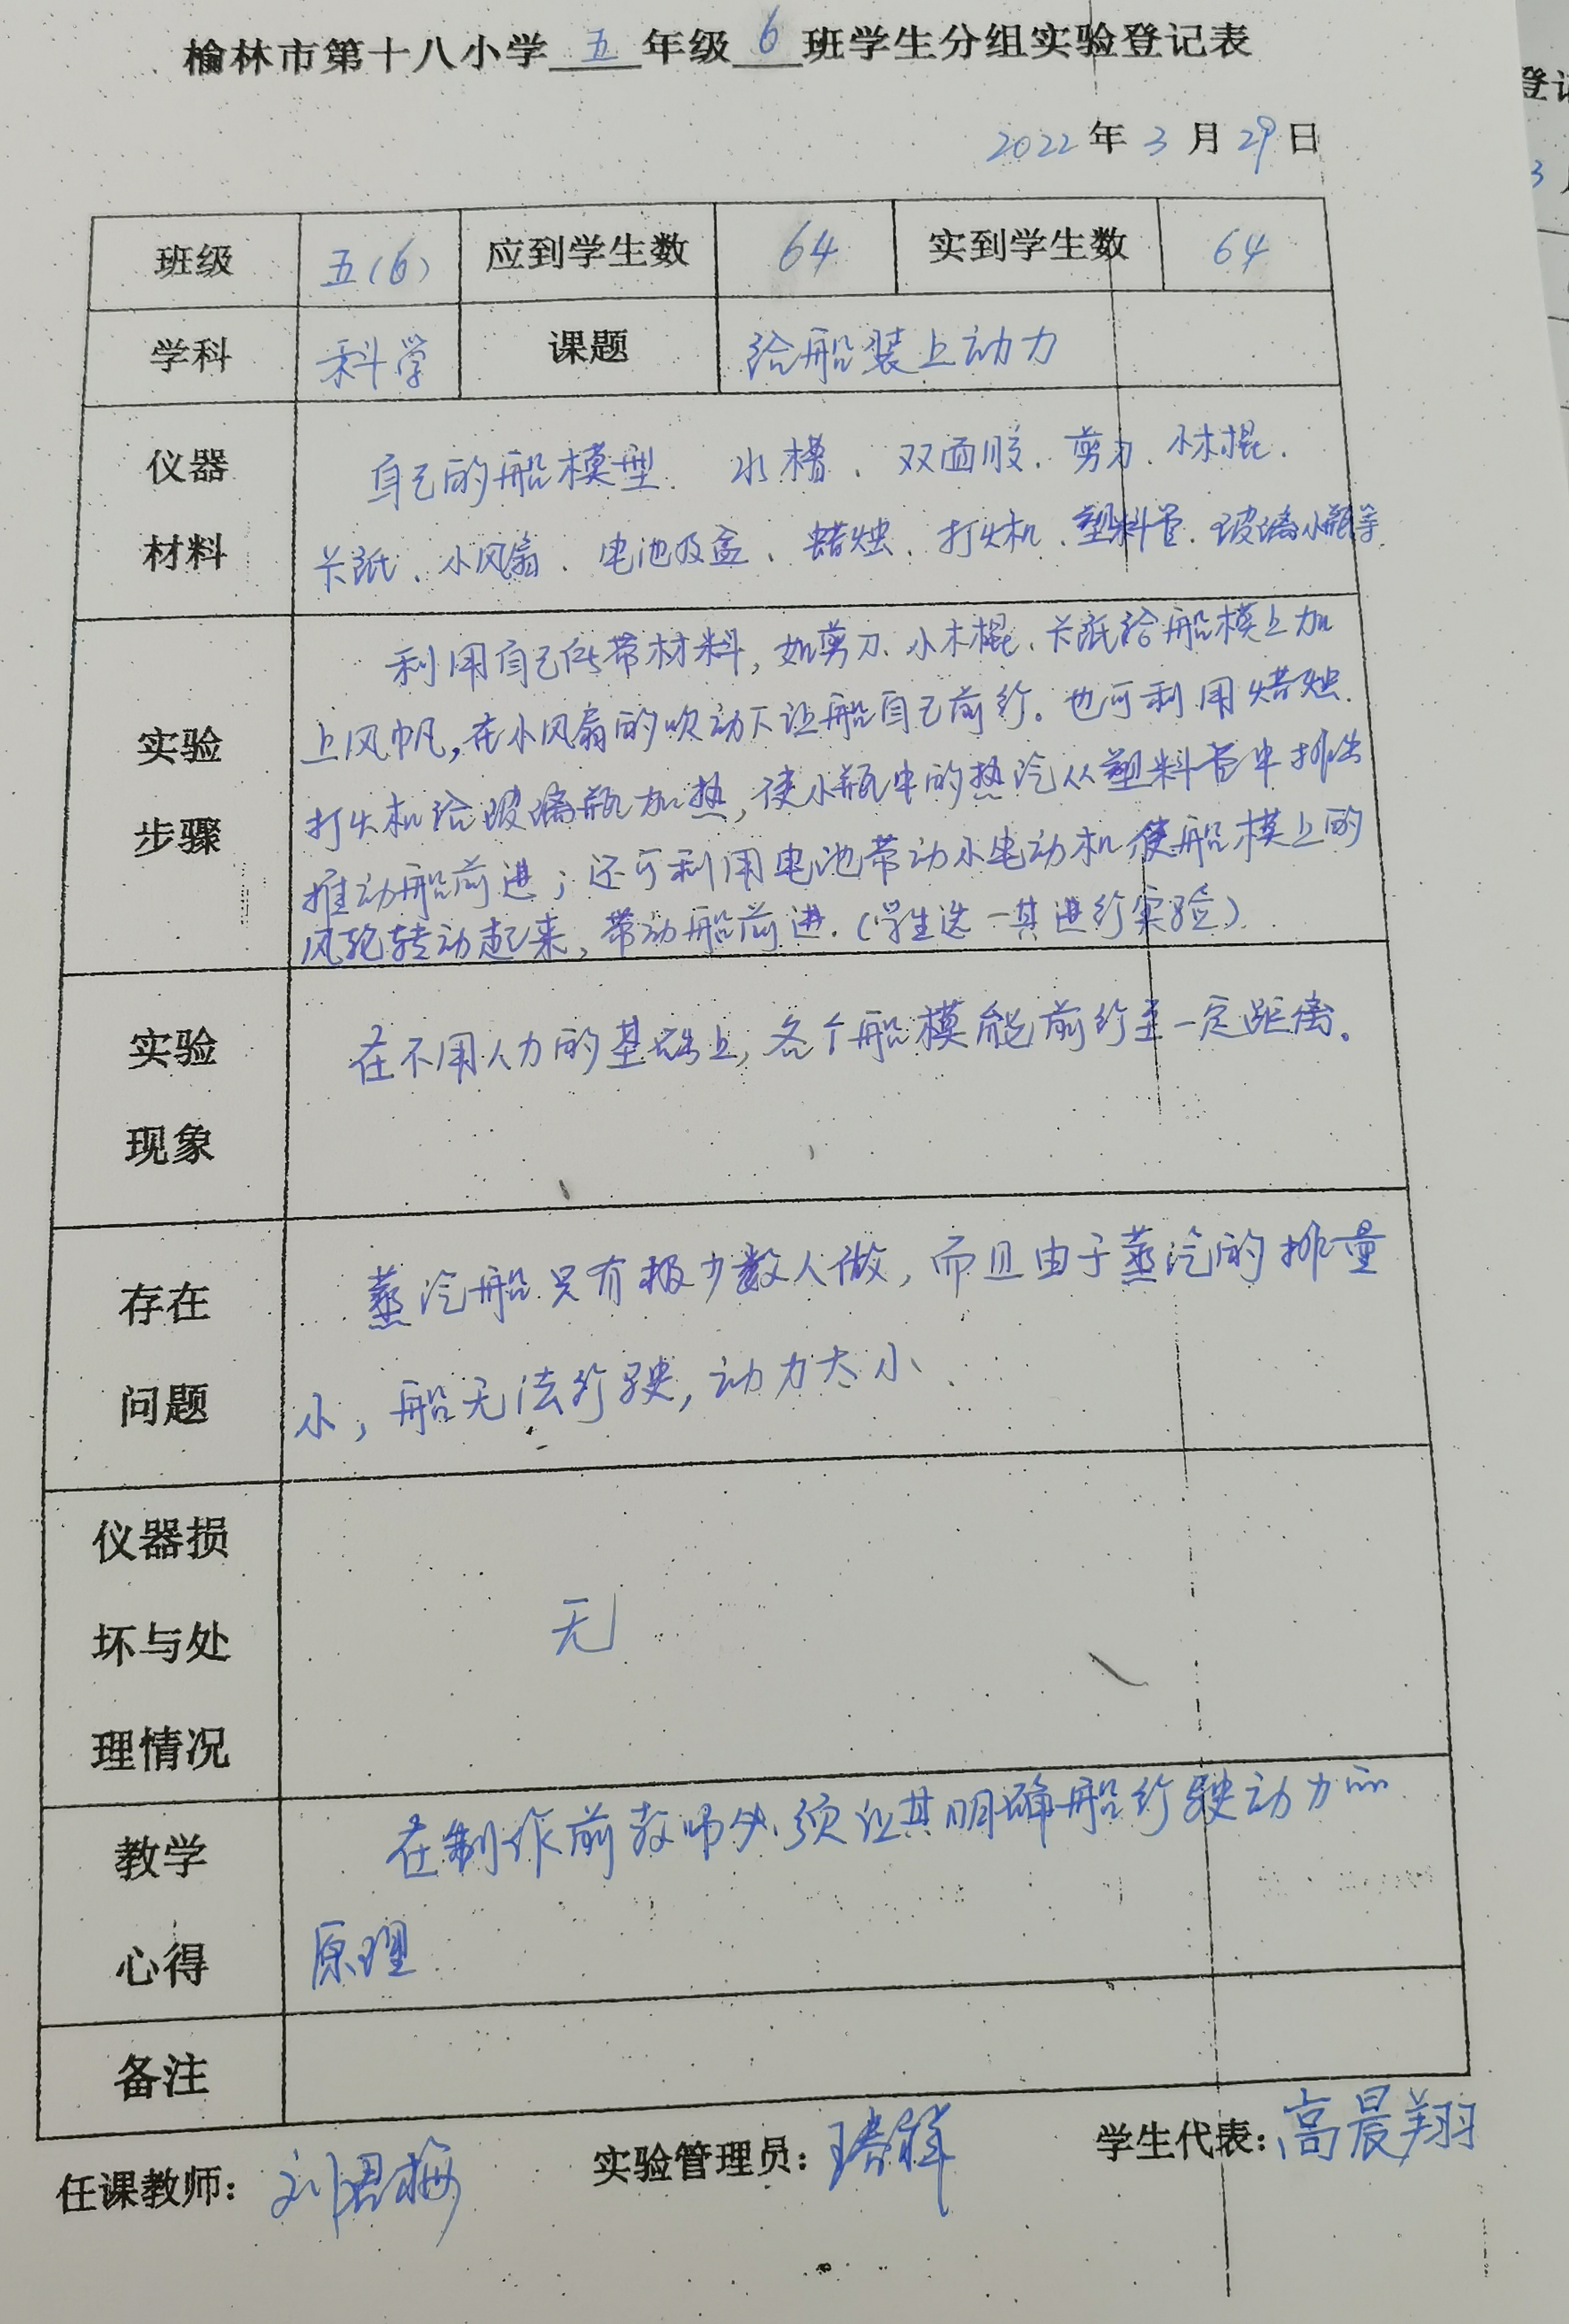 榆林市第十八小学 五 年级 6 班学生分组实验登记表
2022 年 3 月 29 日
班级 五(6) 应到学生数 64 实到学生数 64
学科 科学 课题 给船装上动力
仪器 自己的船模型、水槽、双面胶、剪刀、小木棍、
材料 卡纸、小风扇、电池及盒、蜡烛、打火机、塑料管、玻璃小瓶等
利用自己所带材料,如剪刀、小木棍、卡纸给船模上加
实验 上风帆,在小风扇的吹动下让船自己前行。也可利用蜡烛、
打火机给玻璃瓶加热,使小瓶中的热汽从塑料管中排出
步骤 推动船前进;还可利用电池带动小电动机使船模上的
风轮转动起来,带动船前进.(学生选一其进行实验)
实验 在不用人力的基础上,各个船模能前行至一定距离。
现象
存在 蒸汽船只有极少数人做,而且由于蒸汽的排量
问题 小,船无法行驶,动力太小、
仪器损
坏与处 无
理情况
教学 在制作前教师必须让其明确船行驶动力的
心得 原理
备注
任课教师: 实验管理员: 学生代表:高晨翔
登记
3